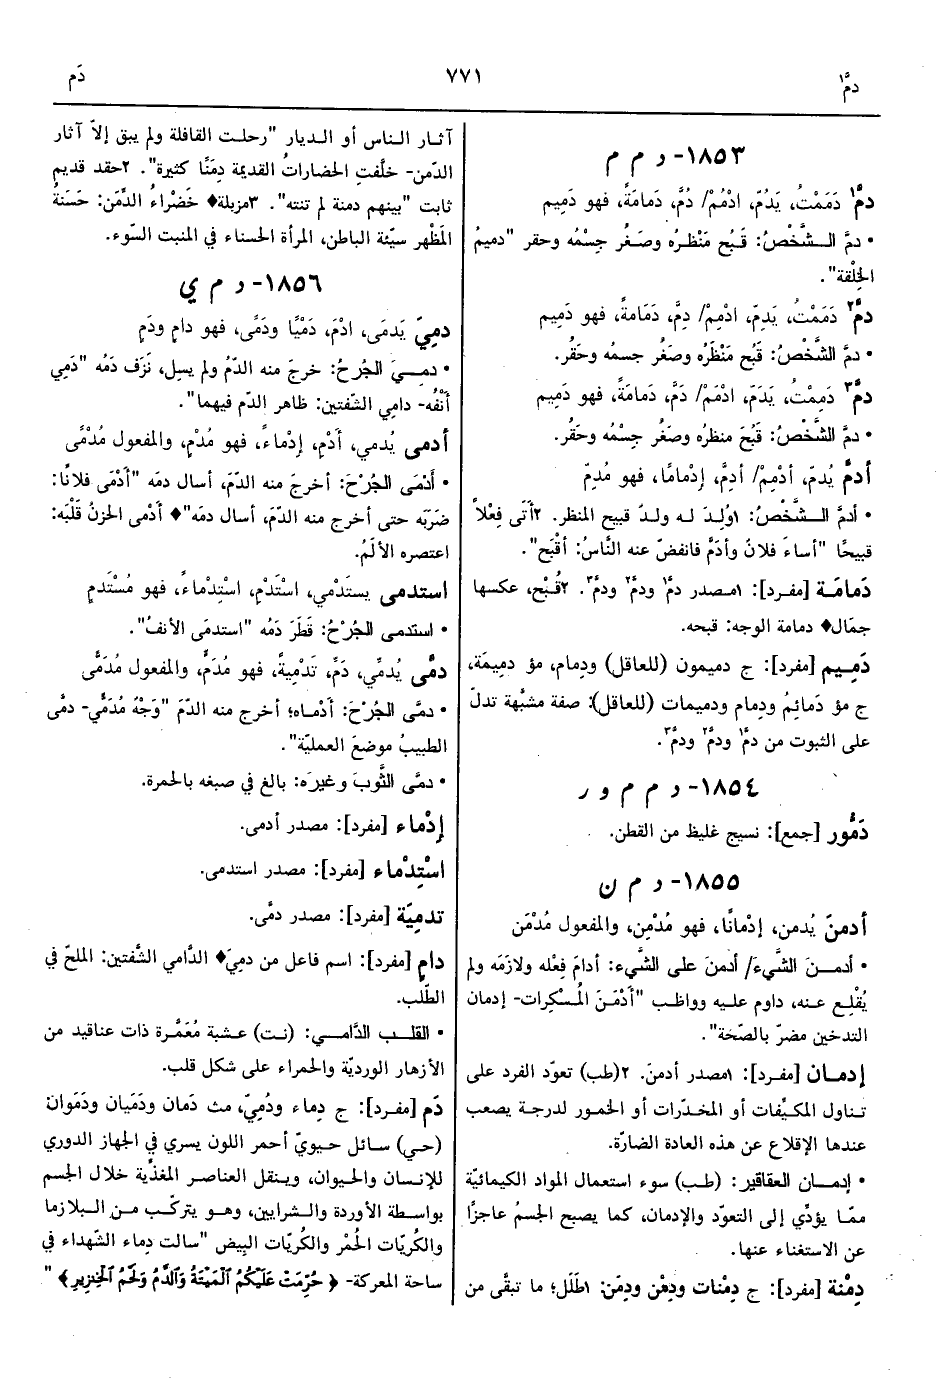 دمَّ١
٧٧١
دَم
١٨٥٣- د م م
دمَّ١ دَمَمْتُ، يَدُمّ، ادْمُمْ/ دُمَّ، دَمامةً، فهو دَمِيم
• دمَّ الشَّخْصُ: قَبُح مَنْظرُه وصَغُر جِسْمُه وحقر "دميمُ
الخِلْقة".
دمَّ٢ دَمَمْتُ، يَدِمّ، ادْمِمْ/ دِمَّ، دَمَامةً، فهو دَمِيم
• دمَّ الشَّخْصُ: قَبُح مَنْظَرُه وصَغُر جسمُه وحقُر.
دمَّ٣ دَمِمْتُ، يَدَمّ، ادْمَمْ/ دَمَّ، دَمَامةً، فهو دَمِيم
• دمَّ الشَّخْصُ: قَبُحَ منظرُه وصَغُر جِسْمُه وحقُر.
أدمَّ يُدِمّ، أدْمِمْ/ أدِمَّ، إدْمامًا، فهو مُدِمّ
• أدمَّ الشَّخْصُ: ١وُلِدَ له ولدٌ قبيح المنظر. ٢أَتَى فِعْلاً
قبيحًا "أساءَ فلانٌ وأدَمَّ فانفضّ عنه النَّاسُ: أقْبَح".
دَمَامَة [مفرد]: ١مصدر دمَّ١ ودمَّ٢ ودمَّ٣. ٢قُبْح، عكسها
جمَال♦ دمامة الوجه: قبحه.
دَمِيم [مفرد]: ج دميمون (للعاقل) ودِمام، مؤ دميمَة،
ج مؤ دَمائِمُ ودِمام ودميمات (للعاقل): صفة مشبَّهة تدلّ
على الثبوت من دمَّ١ ودمَّ٢ ودمَّ٣.
١٨٥٤- د م م و ر
دَمُّور [جمع]: نسيج غليظ من القطن.
١٨٥٥- د م ن
أدمنَ يُدمن، إدْمانًا، فهو مُدْمِن، والمفعول مُدْمَن
• أدمنَ الشَّيءَ/ أدمنَ على الشَّيء: أدامَ فِعْله ولازمَه ولم
يُقْلِع عنه، داوم عليه وواظب "أَدْمَنَ المُسْكِرات- إدمان
التدخين مضرّ بالصّحّة".
إدمان [مفرد]: ١مصدر أدمنَ. ٢(طب) تعوّد الفرد على
تناول المكيِّفات أو المخدّرات أو الخمور لدرجة يصعب
عندها الإقلاع عن هذه العادة الضارّة.
• إدمان العقاقير: (طب) سوء استعمال المواد الكيمائيّة
ممّا يؤدِّي إلى التعوّد والإدمان، كما يصبح الجسمُ عاجزًا
عن الاستغناء عنها.
دِمْنة [مفرد]: ج دِمْنات ودِمْن ودِمَن: ١طَلَل؛ ما تبقَّى من
آثار الناس أو الديار "رحلت القافلة ولم يبق إلاّ آثار
الدّمن- خلَّفتِ الحضاراتُ القديمة دِمَنًا كثيرة". ٢حقد قديم
ثابت "بينهم دمنة لم تنته". ٣مزبلة♦ خَضْراءُ الدِّمَن: حَسَنةُ
المَظْهر سيِّئة الباطن، المرأة الحسناء في المنبت السّوء.
١٨٥٦- د م ي
دمِيَ يَدمَى، ادْمَ، دَمْيًا ودَمًى، فهو دامٍ ودَمٍ
• دمِيَ الجُرحُ: خرجَ منه الدّمُ ولم يسِل، نَزَف دَمُه "دَمِي
أَنْفُه- دامِي الشّفتين: ظاهر الدّم فيهما".
أدمى يُدمي، أَدْمِ، إدْماءً، فهو مُدْمٍ، والمفعول مُدْمًى
• أَدْمَى الجُرْحَ: أخرجَ منه الدّمَ، أسال دمَه "أدْمَى فلانًا:
ضرَبَه حتى أخرج منه الدّمَ، أسال دمَه"♦ أدْمى الحزنُ قَلْبَه:
اعتصره الألَمُ.
استدمى يستَدْمي، استَدْمِ، استِدْماءً، فهو مُسْتَدمٍ
• استدمى الجُرْحُ: قَطَرَ دَمُه "استدمَى الأنفُ".
دمَّى يُدمِّي، دَمِّ، تَدْمِيةً، فهو مُدَمٍّ، والمفعول مُدَمًّى
• دمَّى الجُرْحَ: أدْماه؛ أخرج منه الدّمَ "وَجْهٌ مُدَمَّي- دمَّى
الطبيبُ موضعَ العمليّة".
• دمَّى الثَّوبَ وغيرَه: بالغ في صبغه بالحمرة.
إدْماء [مفرد]: مصدر أدمى.
استِدْماء [مفرد]: مصدر استدمى.
تدمِيَة [مفرد]: مصدر دمَّى.
دامٍ [مفرد]: اسم فاعل من دمِيَ♦ الدَّامي الشَّفتين: الملحّ في
الطّلب.
• القلب الدَّامي: (نت) عشبة مُعَمَّرة ذات عناقيد من
الأزهار الورديّة والحمراء على شكل قلب.
دَم [مفرد]: ج دِماء ودُمِيّ، مث دَمان ودَمَيان ودَمَوان:
(حي) سائل حيويّ أحمر اللون يسري في الجهاز الدوري
للإنسان والحيوان، وينقل العناصر المغذّية خلال الجسم
بواسطة الأوردة والشرايين، وهو يتركّب من البلازما
والكُريّات الحُمْر والكُريّات البِيض "سالت دِماء الشّهداء في
ساحة المعركة- ﴿حُرِّمَتْ عَلَيْكُمُ الْمَيْتَةُ وَالدَّمُ وَلَحْمُ الْخِنزِيرِ﴾"